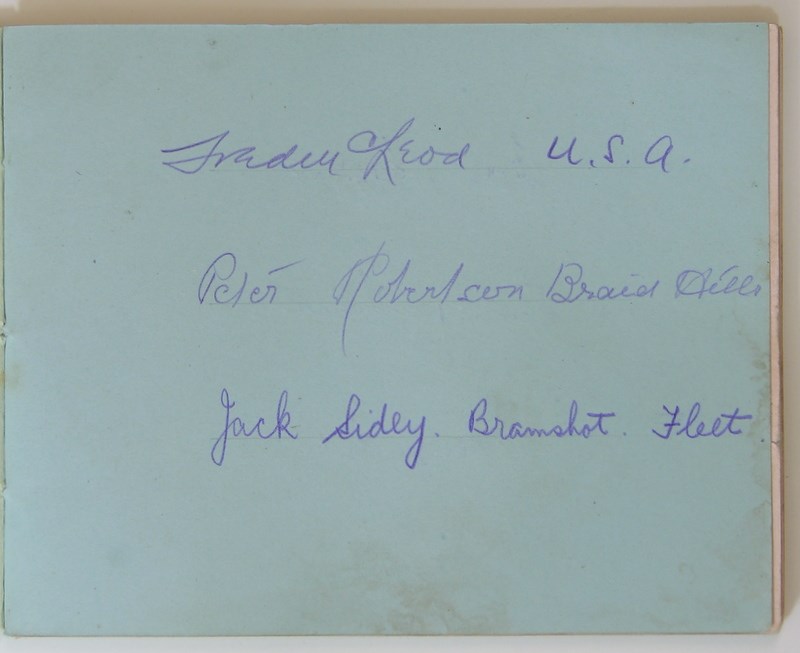 Fred McLeod U.S.A.
Peter Robertson Braid Hills
Jack Sidey. Bramshot. Fleet